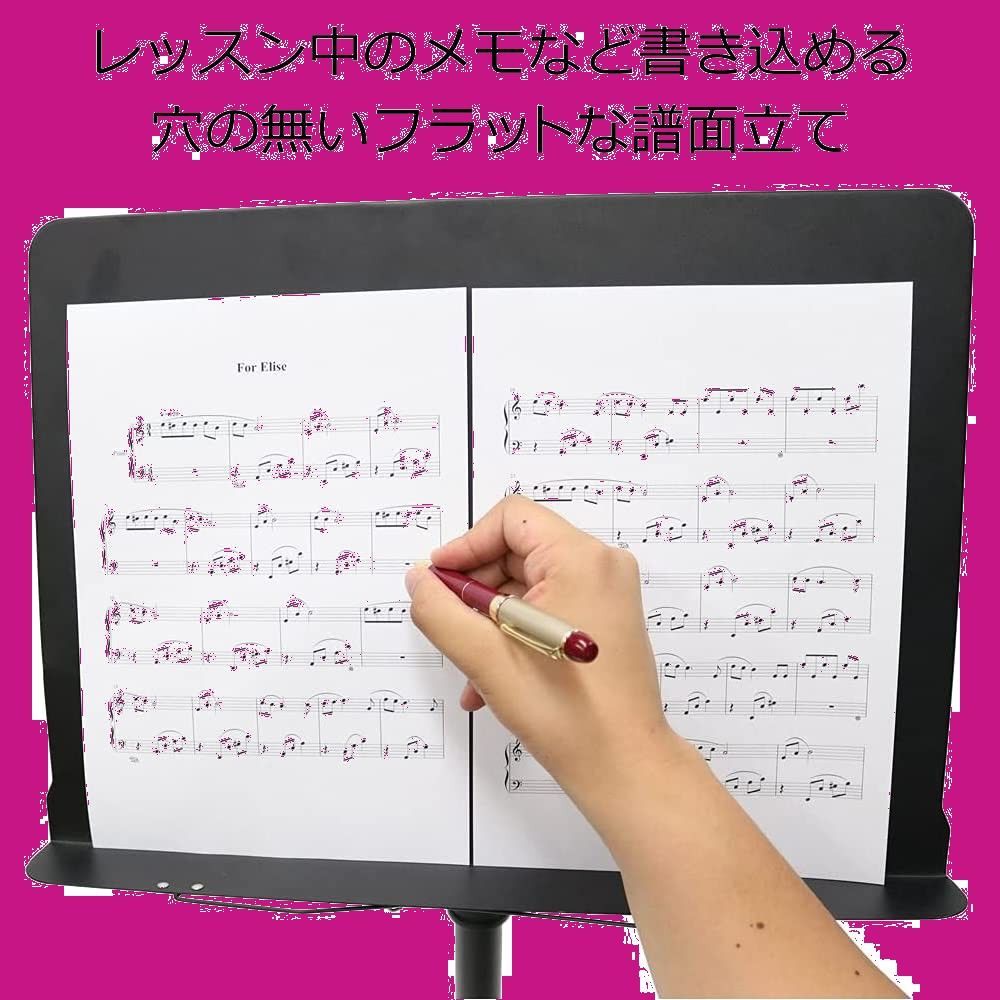 レッスン中のメモなど書き込める
穴の無いフラットな譜面立て
For Elise